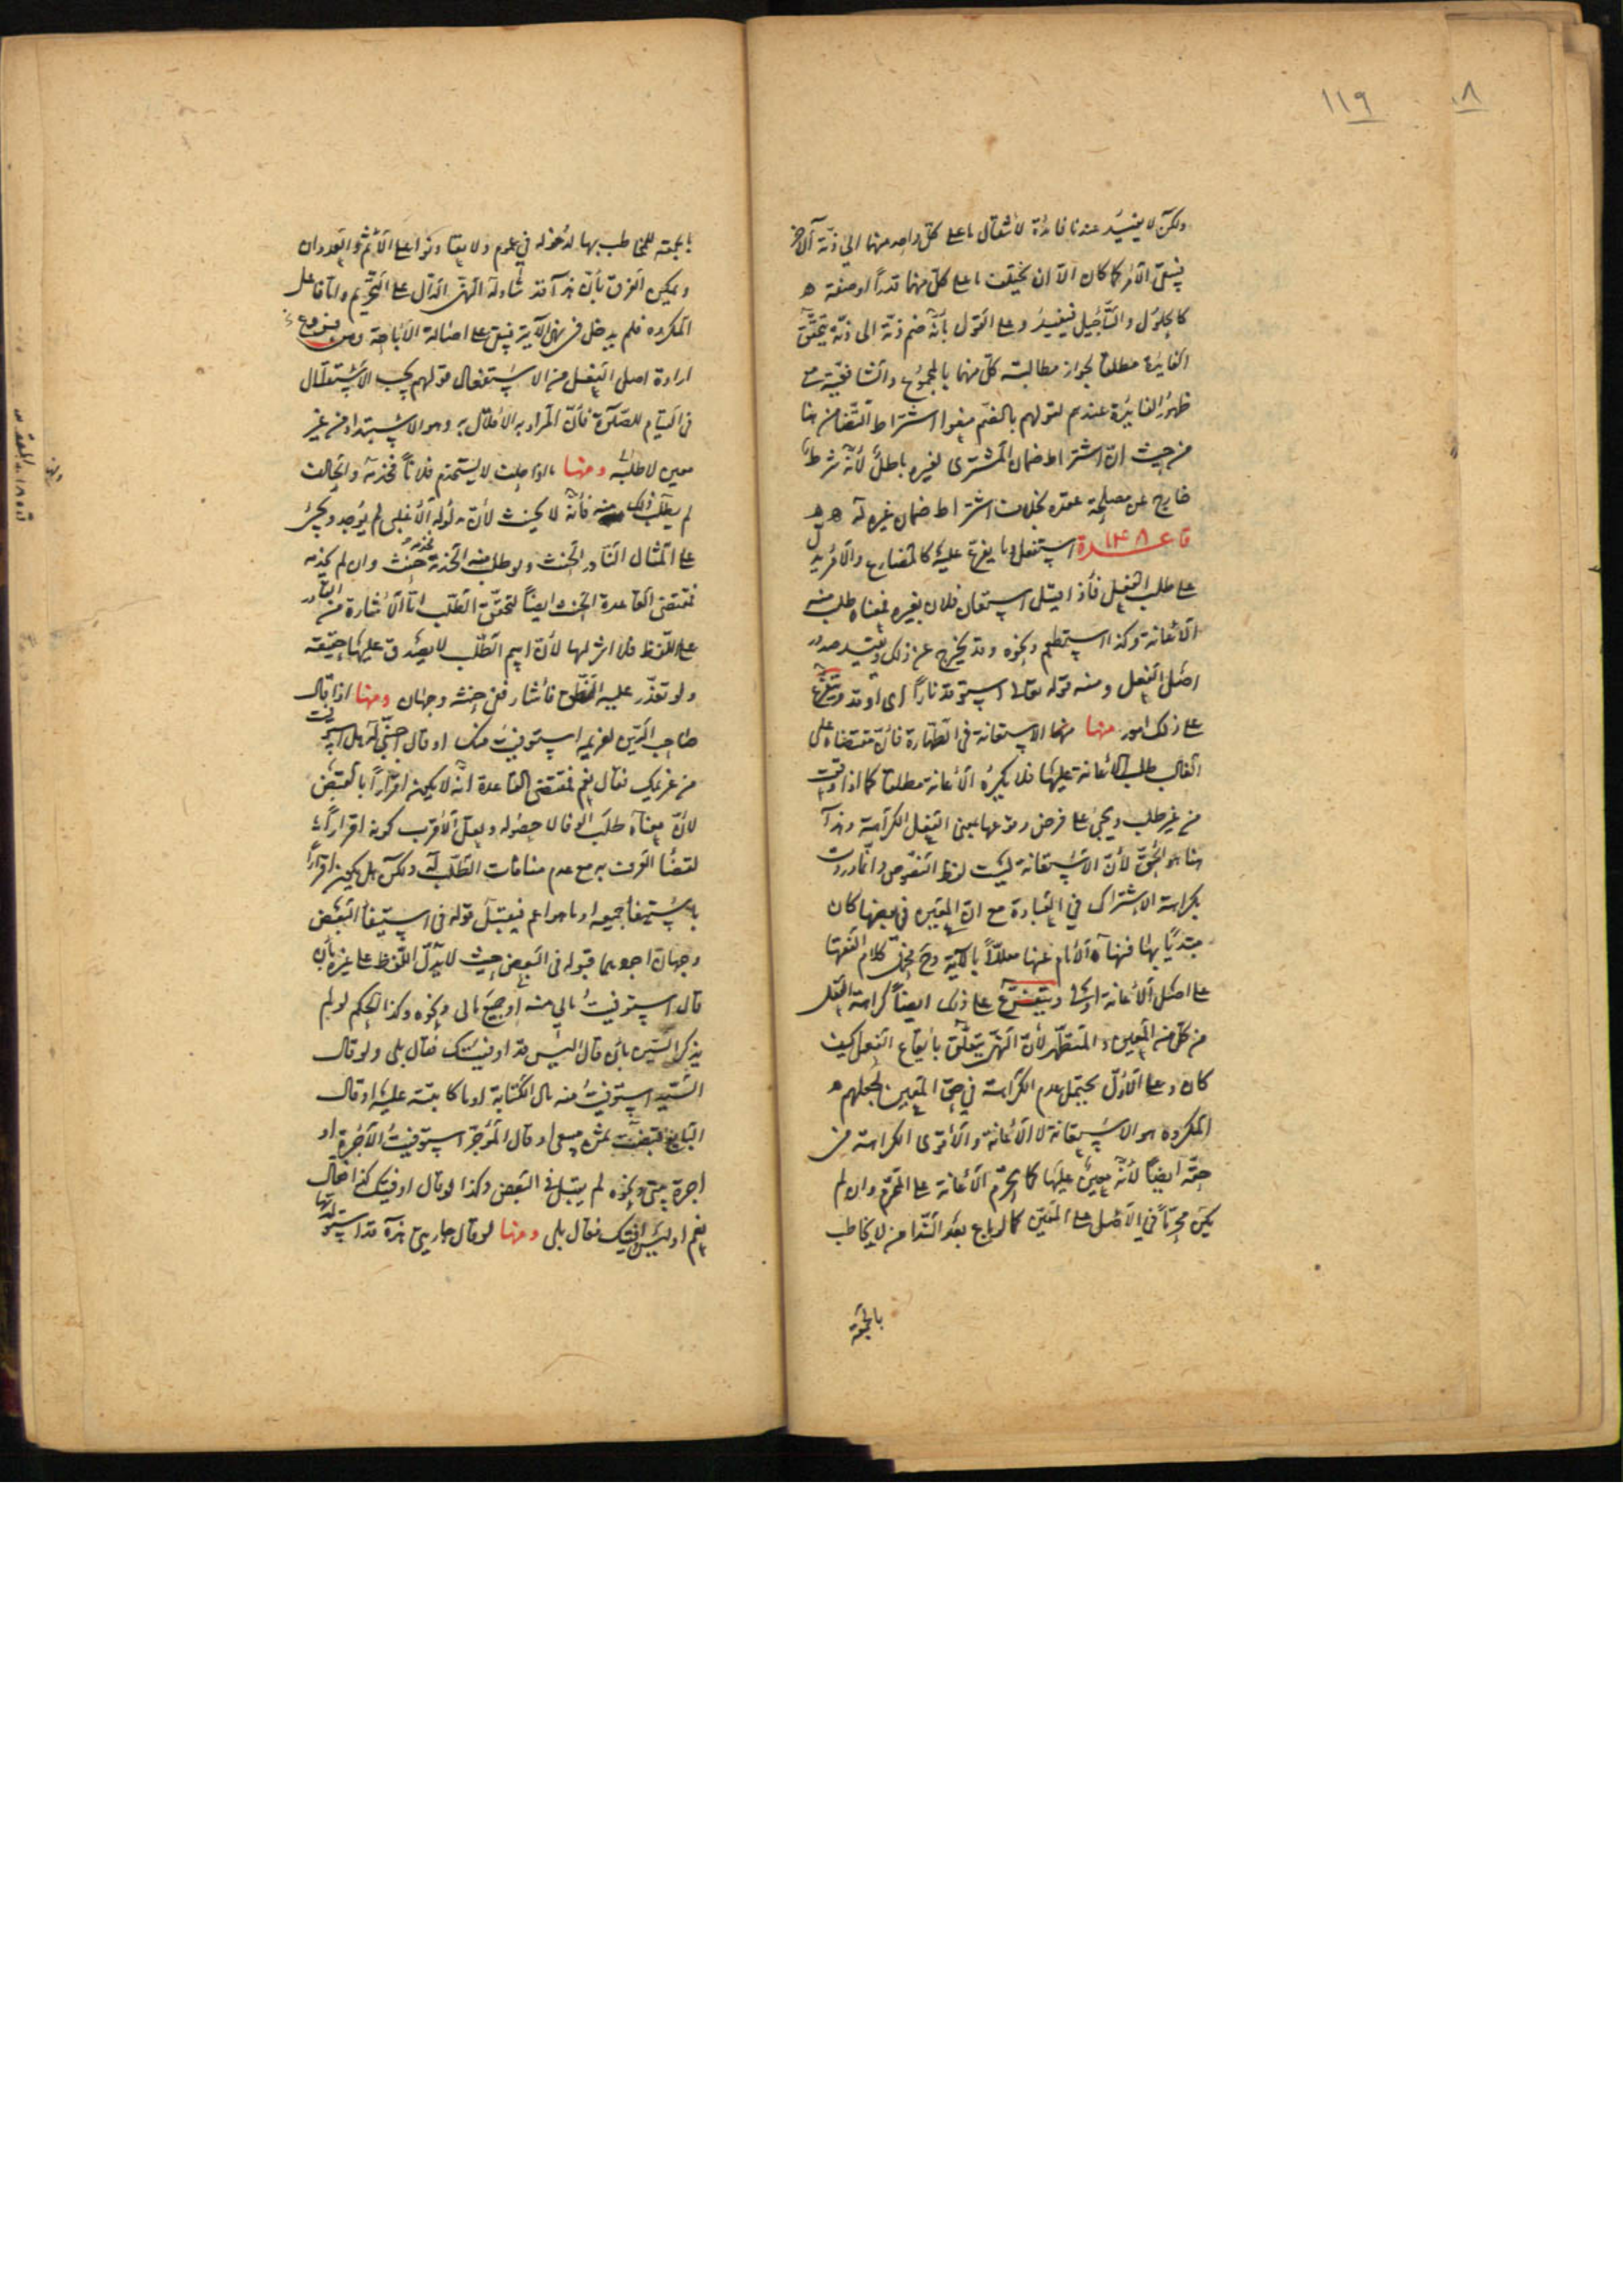 ١١٩
ولكن لا يفيد عندنا فائدة لانتقال ما على كل واحد منهما الى ذمة الآخر
فيبقى الأمر كما كان الا ان يختلف ما على كل منهما قدرا او صفة
كالحلول والتأجيل فيفيد وعلى القول بأنه ضم ذمة الى ذمة يتحقق
الفائدة مطلقا لجواز مطالبة كل منهما بالمجموع والشافعية مع
ظهور الفائدة عندهم لقولهم بالضم منعوا اشتراط التضامن هنا
من حيث ان اشتراط ضمان المشترى لغيره باطل لأنه شرط
خارج عن مصلحة عقده بخلاف اشتراط ضمان غيره له
قاعدة ١٤٨ استفعل وما يفرع عليه كالمضارع والأمر يدل
على طلب الفعل فأذا قيل استعان فلان بغيره فمعناه طلب منه
الأعانة وكذا استطعم ونحوه وقد يخرج عن ذلك ويفيد صدور
اصل الفعل ومنه قوله تعالى استوقد نارا اى اوقد ويتفرع
على ذلك امور منها الاستعانة فى الطهارة فان مقتضاه على
الغالب طلب الأعانة عليها فلا يكره الأعانة مطلقا كما اذا وقعت
من غير طلب ويجئ على فرض وقوعها بمعنى الفعل الكراهة وهذا
هنا هو الحق لأن الاستعانة ليست لفظ النصوص وانما وردت
بكراهة الاشتراك في العبادة مع ان المعين في بعضها كان
مبتديا بها فنهاه الأمام عنها معللا بالآية وح فحمل كلام الفقهاء
على اصل الأعانة اولى ويتفرع على ذلك ايضا كراهة الفعل
من كل من المعين والمتطهر لأن النهى يتعلق بايقاع الفعل كيف
كان وعلى الأول يحتمل عدم الكراهة في حق المعين لجعلهم
المكروه هو الاستعانة لا الأعانة والأقوى الكراهة من
حقه ايضا لأنه معين عليها كما يحرم الأعانة على المحرم وان لم
يكن محرما في الأصل على المعين كما لو باع بعد النداء من لا يخاطب
بالجمعة
بالجمعة للمخاطب بها لدخوله في عموم ولا تعاونوا على الأثم والعدوان
ويمكن الفرق بأن هذا قد تناوله النهى الدال على التحريم واما فاعل
المكروه فلم يدخل فى نهى الآية فيبقى على اصالة الأباحة ومن فروع
ارادة اصل الفعل من الاستفعال قولهم يجب الأستقبال
فى القيام للصلاة فأن المراد به الأقبال به وهو الاستبداد من غير
معين لا طلبه ومنها ما لو حلف لا يستخدم فلانا فخدمه والحالف
لم يطلب ذلك منه فأنه لا يحنث لأن مدلوله الأغلبى لم يوجد ويجئ
على المثال النادر الحنث ولو طلب منه الخدمة فخدمه حنث وان لم يخدمه
فمقتضى القاعدة الحنث ايضا لتحقق الطلب اما الأشارة من القادر
على اللفظ فلا اثر لها لأن اسم الطلب لا يصدق عليها حقيقة
ولو تعذر عليه النطق فأشار ففى حنثه وجهان ومنها اذا قال
صاحب الدين لغريمه استوفيت منك او قال اجنبى له هل استوفيت
من غريمك فقال نعم فمقتضى القاعدة انه لا يكون اقرارا بالقبض
لأن معناه طلب الوفاء لا حصوله ولعل الأقرب كونه اقرارا
لقضاء العرف به مع عدم منافات الطلب له ولكن هل يكون اقرارا
باستيفاء جميعه او ما هو اعم فيقبل قوله فى استيفاء البعض
وجهان اجودهما قبوله فى البعض حيث لا يدل اللفظ على غيره بأن
قال استوفيت مالي منه او جميع مالى ونحوه وكذا الحكم لو لم
يذكر السين بأن قال اليس قد اوفيتك فقال بلى ولو قال
السيد استوفيت منه مال الكتابة او ما كاتبته عليه او قال
البايع قبضت ثمن مبيعى او قال المؤجر استوفيت الأجرة او
اجرة بيتى ونحوه لم يقبل فى البعض وكذا لو قال اوفيتك كذا فقال
نعم او ليس اوفيتك فقال بلى ومنها لو قال جاريتى هذه قد استولدتها